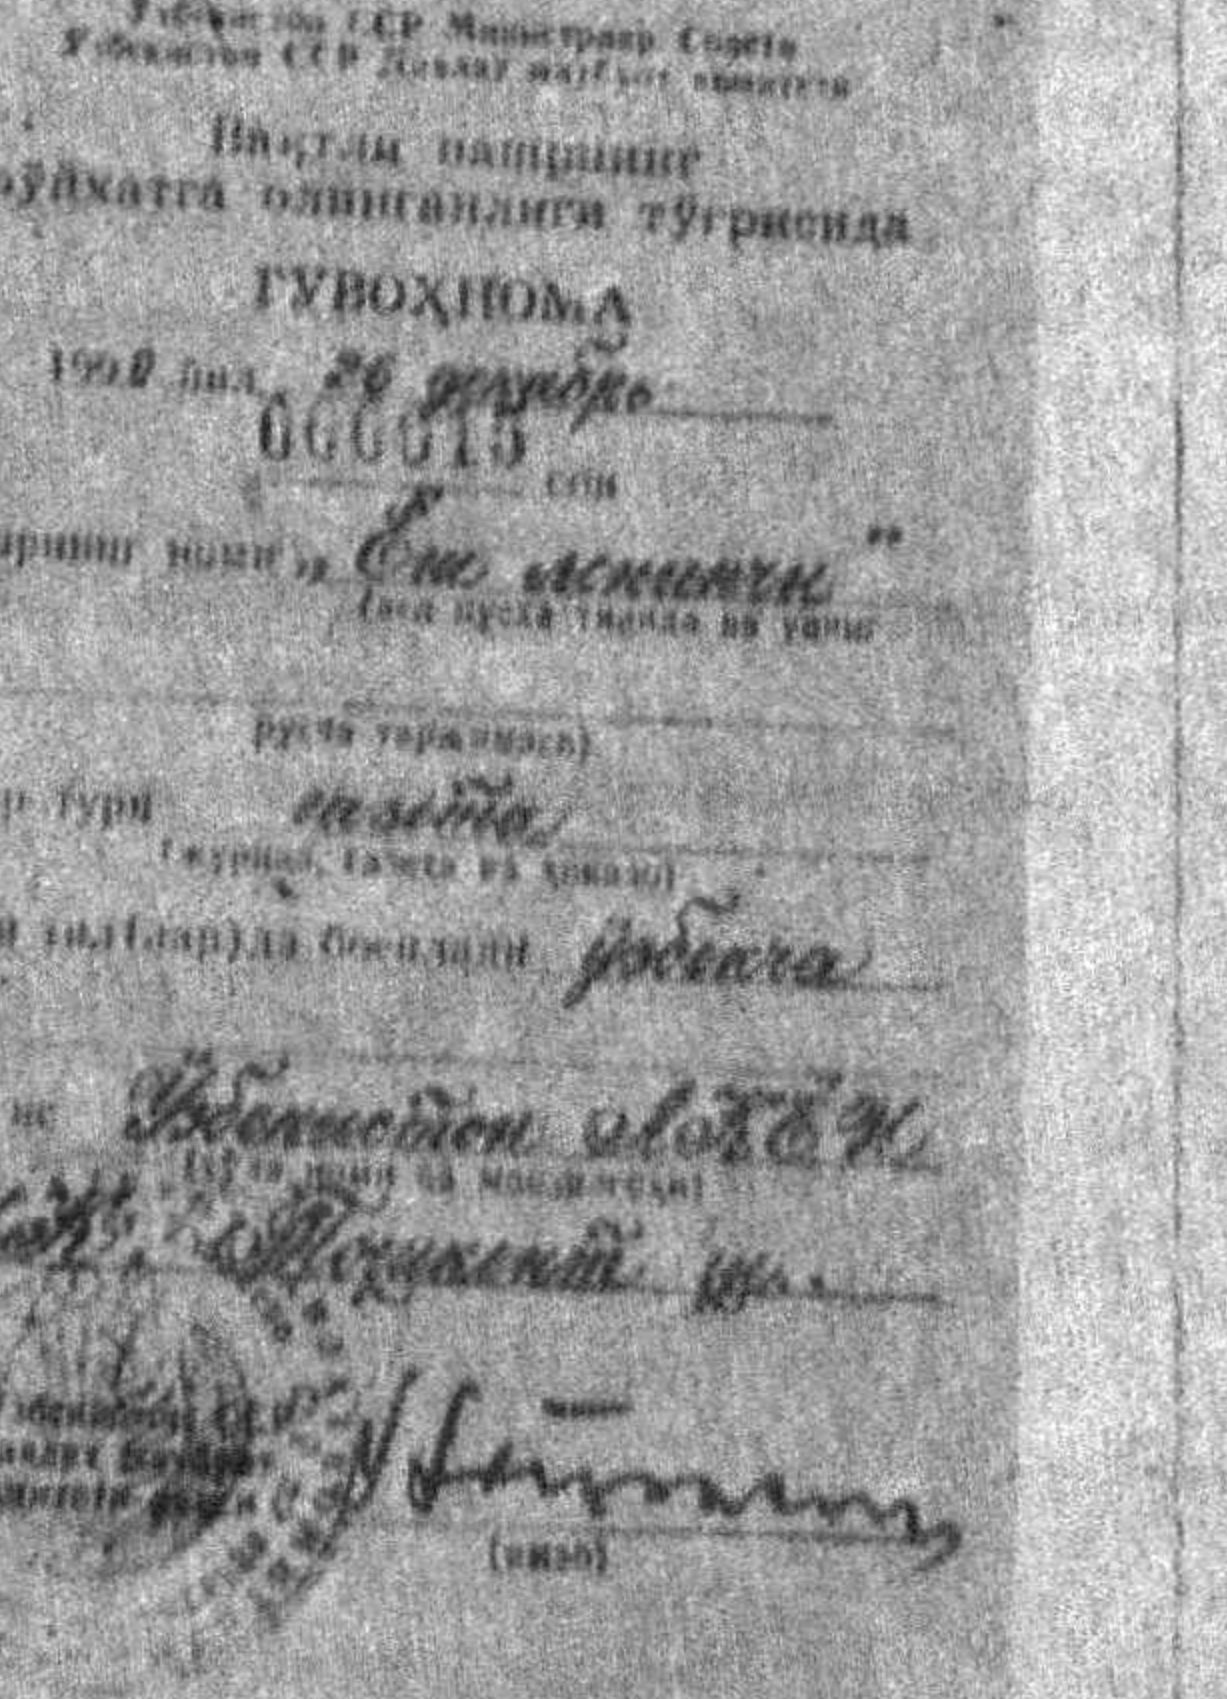 Ўзбекистон ССР Министрлар Совети
Ўзбекистон ССР Давлат матбуот комитети
Вақтли нашрнинг
рўйхатга олинганлиги тўғрисида
ГУВОҲНОМА
1990 йил 26 декабрь
000015
сон
нашрнинг номи „Ёш ленинчи"
(асл нусха тилида ва унинг
русча таржимаси)
тури газета
(журнал, газета ва ҳоказо)
тил(лар)да босилади ўзбекча
Ўзбекистон ЛКЁИ
(тўла номи ва манзилгоҳи)
Тошкент ш.
Ўзбекистон ССР
(имзо)